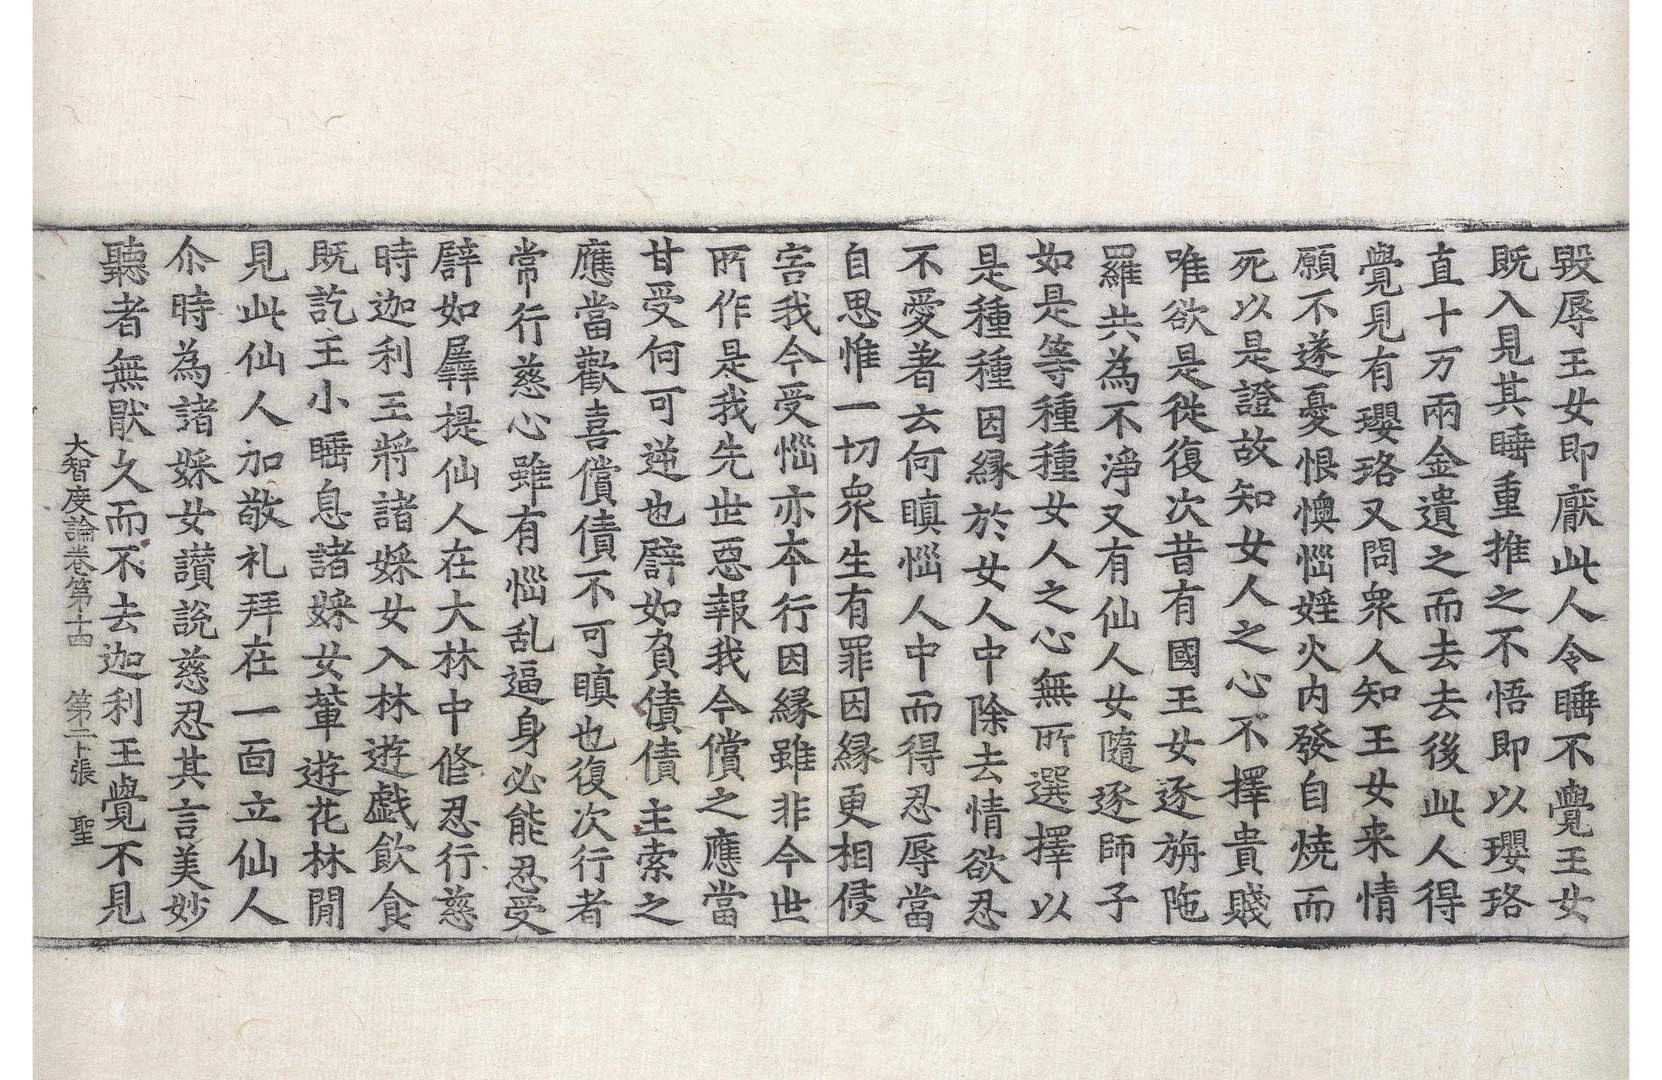 毀辱王女即厭此人令睡不覺王女
既入見其睡重推之不悟即以瓔珞
直十万兩金遺之而去去後此人得
覺見有瓔珞又問衆人知王女来情
願不遂憂恨懊惱婬火内發自燒而
死以是證故知女人之心不擇貴賤
唯欲是從復次昔有國王女逐旃陁
羅共為不淨又有仙人女隨逐師子
如是等種種女人之心無所選擇以
是種種因縁於女人中除去情欲忍
不愛著云何瞋惱人中而得忍辱當
自思惟一切衆生有罪因縁更相侵
害我今受惱亦本行因縁雖非今世
所作是我先世惡報我今償之應當
甘受何可逆也譬如負債債主索之
應當歡喜償債不可瞋也復次行者
常行慈心雖有惱乱逼身必能忍受
譬如羼提仙人在大林中修忍行慈
時迦利王將諸婇女入林遊戯飲食
既訖王小睡息諸婇女輩遊花林間
見此仙人加敬礼拜在一面立仙人
尒時為諸婇女讃說慈忍其言美妙
聽者無猒久而不去迦利王覺不見
大智度論卷第十四 第二十張 聖